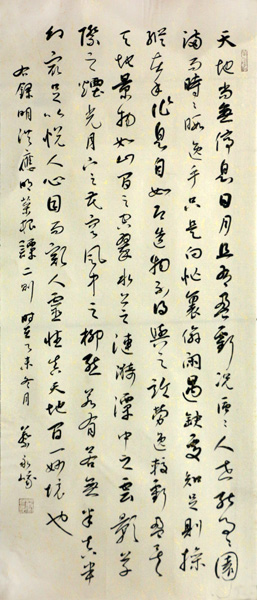 天地尚無停息日月且有盈虧況區區人世能事事圓
滿而時時暇逸乎只是向忙裏偷閒遇缺處知足則操
縱在我作息自如即造物不得與之論勞逸較虧盈矣
天地景物如山間之空翠水上之漣漪潭中之雲影草
際之煙光月下之花容風中之柳態若有若無半真半
幻最足以悅人心目而豁人靈性真天地間一妙境也
右錄明洪應明菜根譚二則 時 未冬月 永